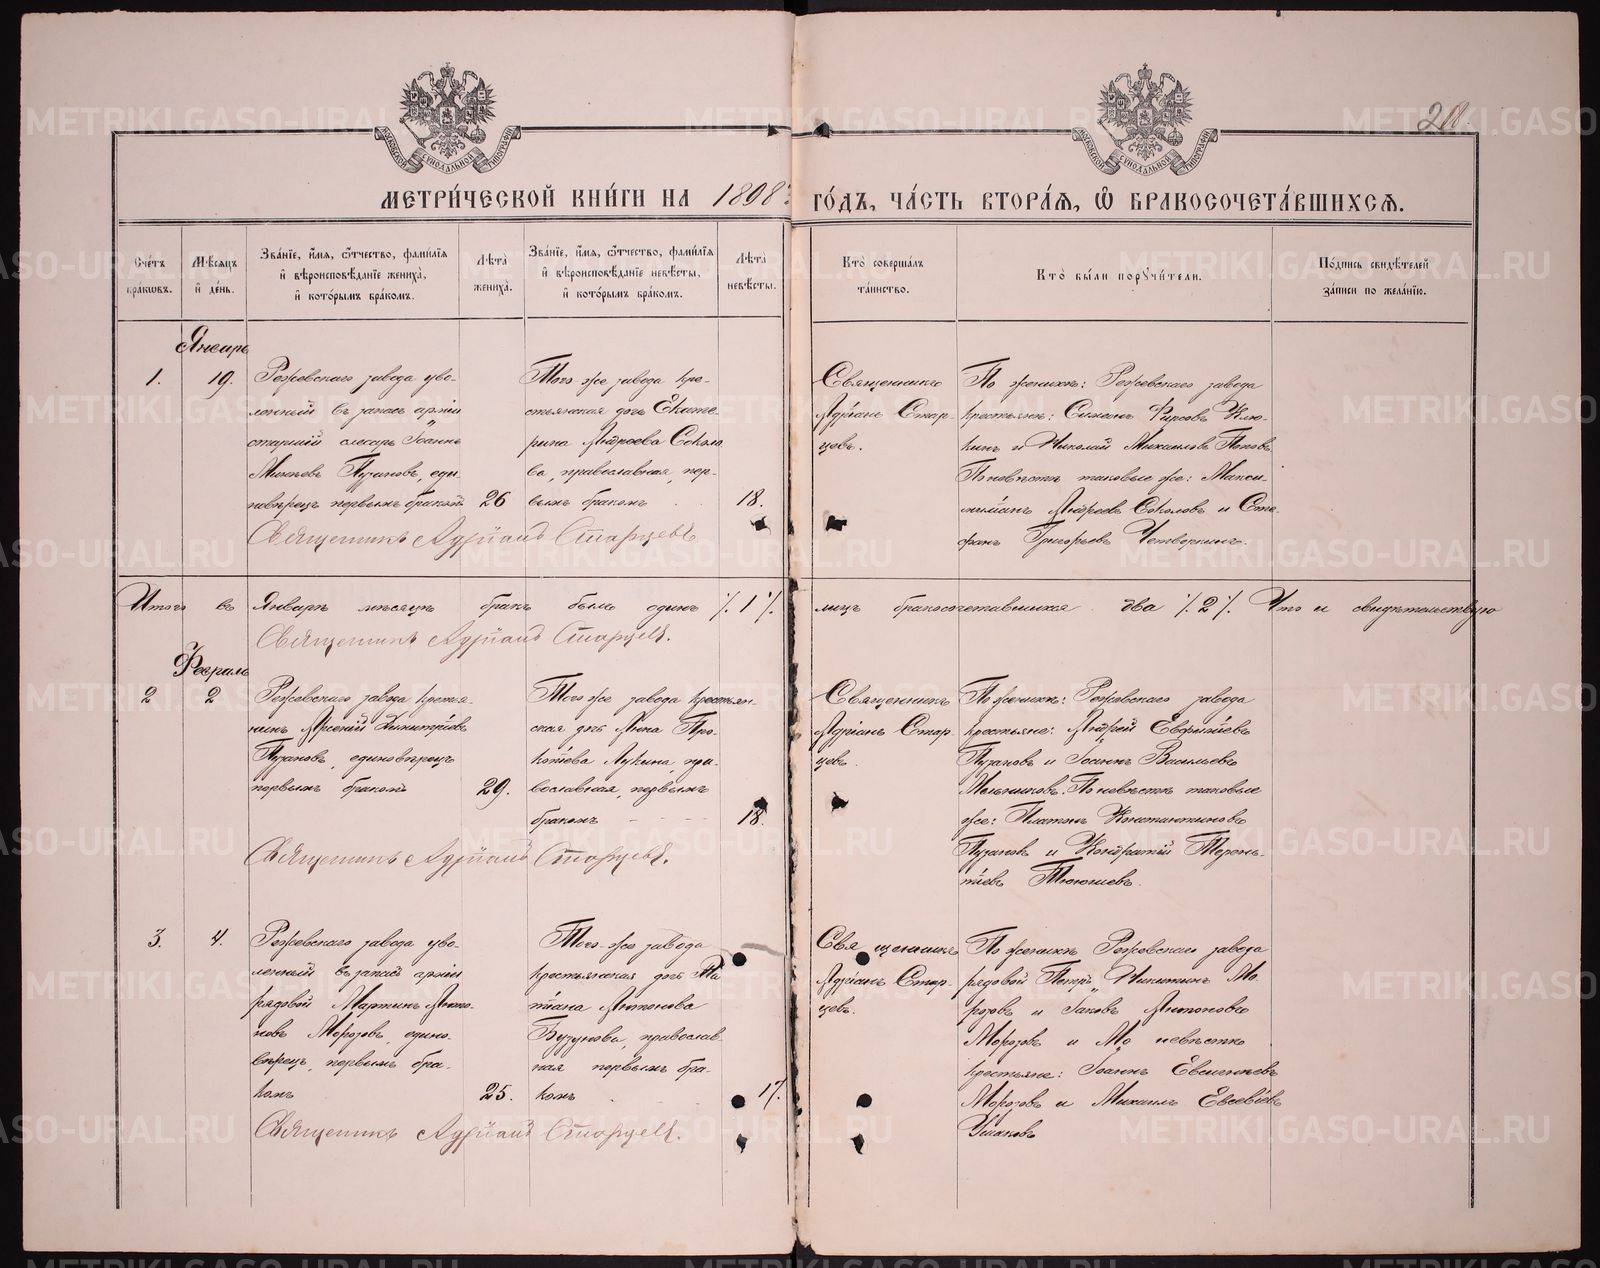 20
МОСКОВСКОЙ СѴНОДАЛЬНОЙ ТИПОГРАФІИ
МОСКОВСКОЙ СѴНОДАЛЬНОЙ ТИПОГРАФІИ
МЕТРИ́ЧЕСКОЙ КНИ́ГИ НА 1898 ГО́ДЪ, ЧА́СТЬ ВТОРА́Ѧ, Ѽ БРАКОСОЧЕТА́ВШИХСѦ.
Сче́тъ бра́кωвъ.
Мѣ́сяцъ и҆ де́нь.
Зва́нїе, и҆́мѧ, ѻ҆́тчество, фами́лїѧ и҆ вѣроисповѣ́данїе жениха̀, и҆ кото́рымъ бра́комъ.
Лѣ́та жениха̀.
Зва́нїе, и҆́мѧ, ѻ҆́тчество, фами́лїѧ и҆ вѣроисповѣ́данїе невѣ́сты, и҆ кото́рымъ бра́комъ.
Лѣ́та невѣ́сты.
Кто̀ соверша́лъ та́инство.
Кто̀ бы́ли порꙋчи́тели.
По́дпись свидѣ́телей за́писи по жела́нїю.
Январь
1.
19.
Режевскаго завода уво-
ленный въ запасъ арміи
старшій слесарь Іоаннъ
Михѣевъ Пузановъ, еди-
новѣрецъ первымъ бракомъ
26
Того-же завода кре-
стьянская дочь Екате-
рина Андреева Соколо
ва, православная, пер-
вымъ бракомъ
18.
Священникъ
Адріанъ Стар-
цевъ.
По женихѣ: Режевскаго завода
крестьяне: Симеонъ Фирсовъ Клю-
кинъ и Николай Михаиловъ Поповъ.
По невѣстѣ таковые же: Макси-
миліанъ Андреевъ Соколовъ и Сте
фанъ Григорьевъ Четверкинъ.
Священникъ Адріанъ Старцевъ
Итого въ Январѣ мѣсяцѣ бракъ былъ одинъ ·/. 1 ·/. лицъ бракосочетавшихся два ·/. 2 ·/. Что и свидѣтельствую
Священникъ Адріанъ Старцевъ.
Февраль
2
2
Режевскаго завода крестья-
нинъ Арсеній Димитріевъ
Пузановъ, единовѣрецъ
первымъ бракомъ
29.
Того же завода крестьян-
ская дочь Анна Про-
копіева Лукина, пра-
вославная, первымъ
бракомъ
18.
Священникъ
Адріанъ Стар-
цевъ.
По женихѣ: Режевскаго завода
крестьяне: Андрей Евфиміевъ
Пузановъ и Іоаннъ Васильевъ
Мельниковъ. По невѣстѣ таковые
же: Платонъ Константиновъ
Пузановъ и Кондратій Терень-
тіевъ
Священникъ Адріанъ Старцевъ.
3.
4.
Режевскаго завода уво-
ленный въ запасъ арміи
рядовой Мартинъ Анто-
новъ Морозовъ, едино-
вѣрецъ, первымъ бра-
комъ
25.
Того-же завода
крестьянская дочь Та
тіана Антонова
Бузунова, православ-
ная первымъ бра-
комъ
17.
Священникъ
Адріанъ Стар-
цевъ.
По женихѣ Режевскаго завода
рядовой Петръ Никитинъ Мо
розовъ и Іаковъ Антоновъ
Морозовъ и По невѣстѣ
крестьяне: Іоаннъ Евгеніевъ
Морозовъ и Михаилъ Евсевіевъ
Ушаковъ
Священникъ Адріанъ Старцевъ.
METRIKI.GASO-URAL.RU